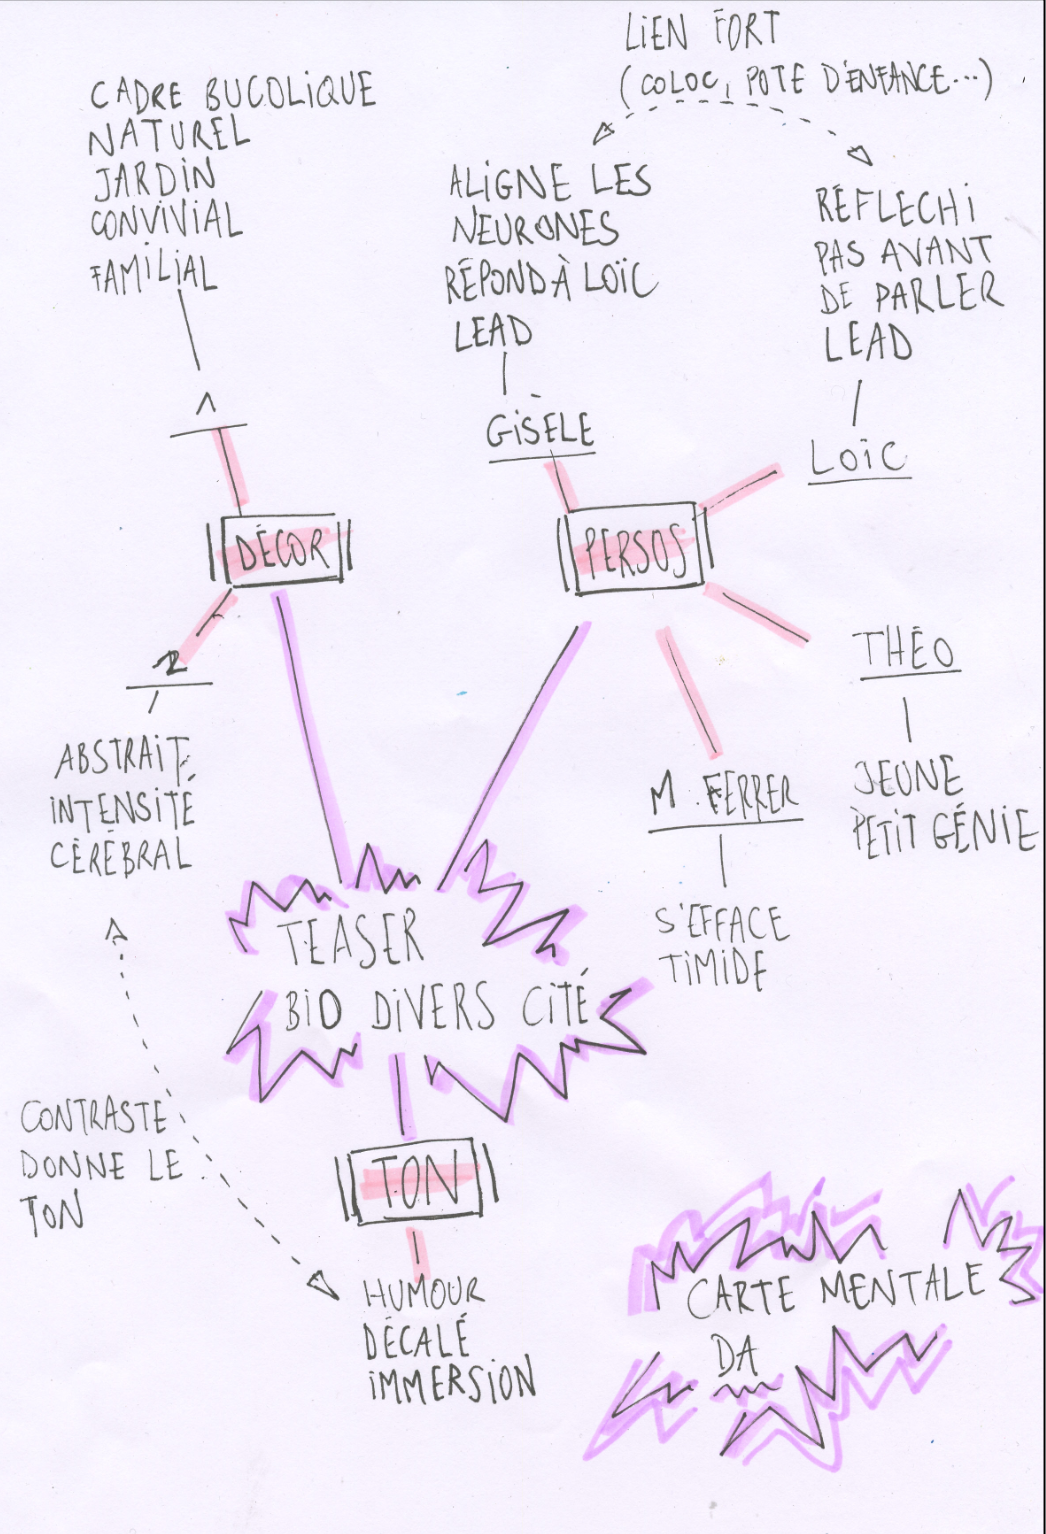 LIEN FORT
(COLOC, POTE D'ENFANCE...)
CADRE BUCOLIQUE
NATUREL
JARDIN
CONVIVIAL
FAMILIAL
ALIGNE LES
NEURONES
RÉPOND À LOÏC
LEAD
RÉFLECHI
PAS AVANT
DE PARLER
LEAD
1
GISÈLE
LOÏC
DÉCOR
PERSOS
2
THÉO
ABSTRAIT
INTENSITÉ
CÉRÉBRAL
M. FERRER
JEUNE
PETIT GÉNIE
S'EFFACE
TIMIDE
TEASER
BIO DIVERS CITÉ
CONTRASTE
DONNE LE
TON
TON
HUMOUR
DÉCALÉ
IMMERSION
CARTE MENTALE
DA